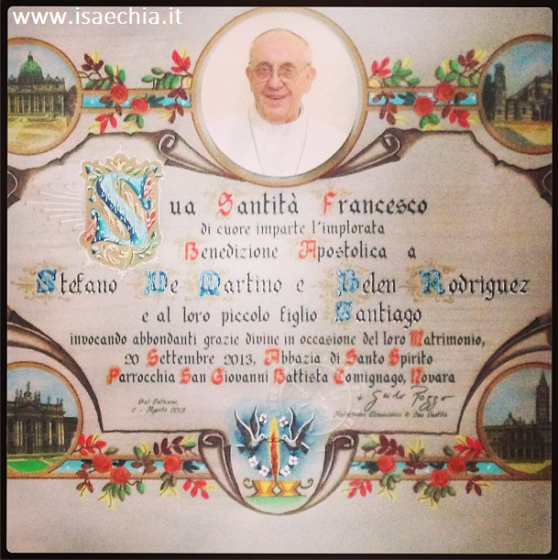 www.isaechia.it
Sua Santità Francesco
di cuore imparte l'implorata
Benedizione Apostolica a
Stefano De Martino e Belen Rodriguez
e al loro piccolo figlio Santiago
invocando abbondanti grazie divine in occasione del loro Matrimonio,
20 Settembre 2013, Abbazia di Santo Spirito
Parrocchia San Giovanni Battista Comignago, Novara
Dal Vaticano
2 - Agosto 2013
+ Guido Pozzo
Arcivescovo Elemosiniere di Sua Santità